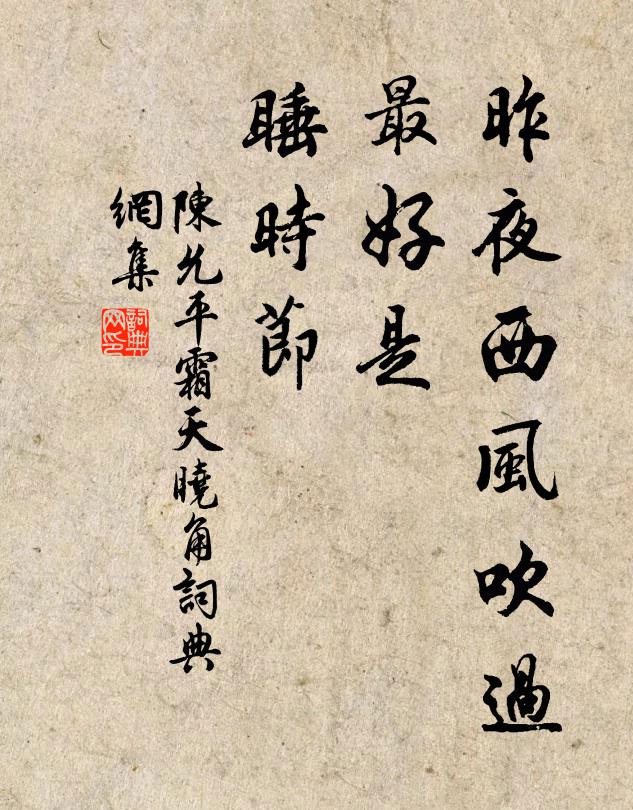 昨夜西風吹過
最好是
睡時節
陳允平霜天曉角詞典
網集
詞典
网印